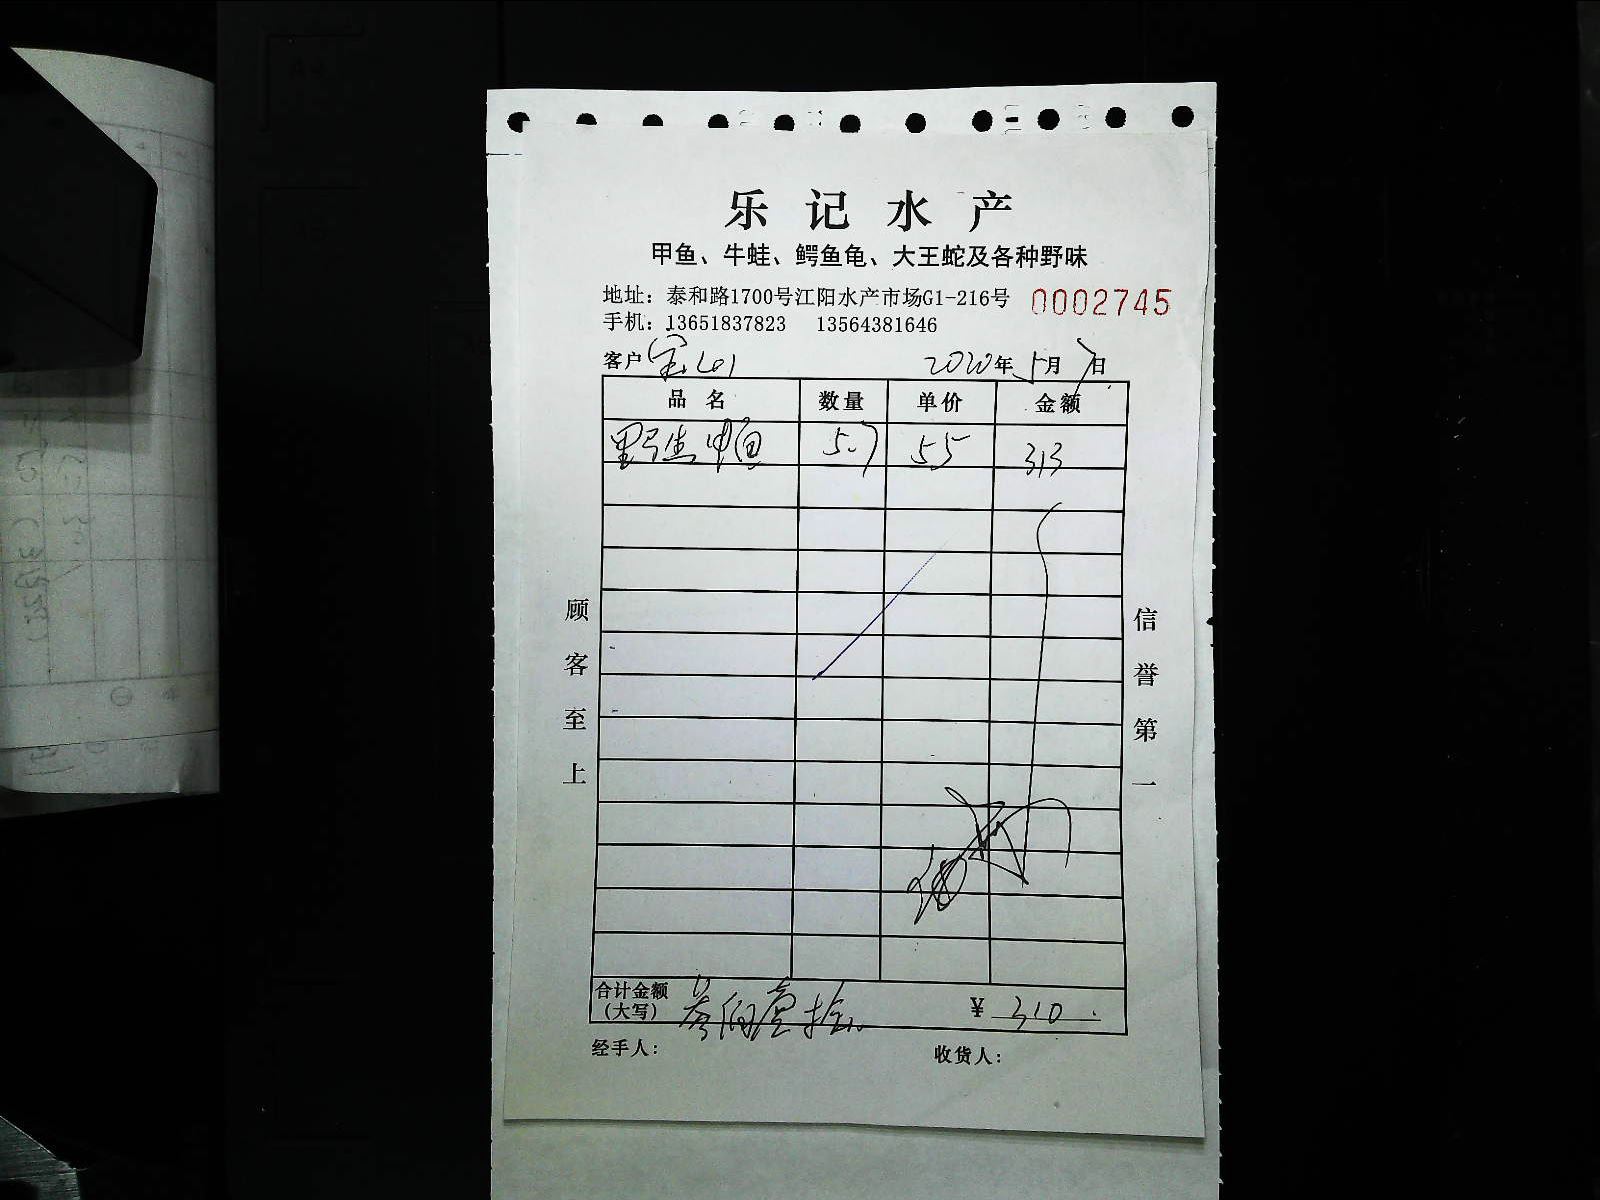 乐记水产
甲鱼、牛蛙、鳄鱼龟、大王蛇及各种野味
地址：泰和路1700号江阳水产市场G1-216号 0002745
手机：13651837823 13564381646
客户 宝山 2020年5月7日
品名 数量 单价 金额
野生甲鱼 5.7 55 313
顾客至上
信誉第一
合计金额 叁佰壹拾 ¥ 310.
(大写)
经手人： 收货人：